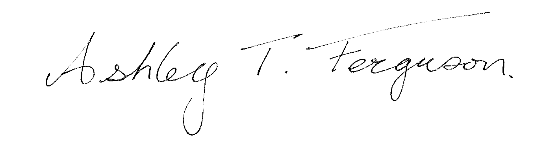 Ashley T. Ferguson.